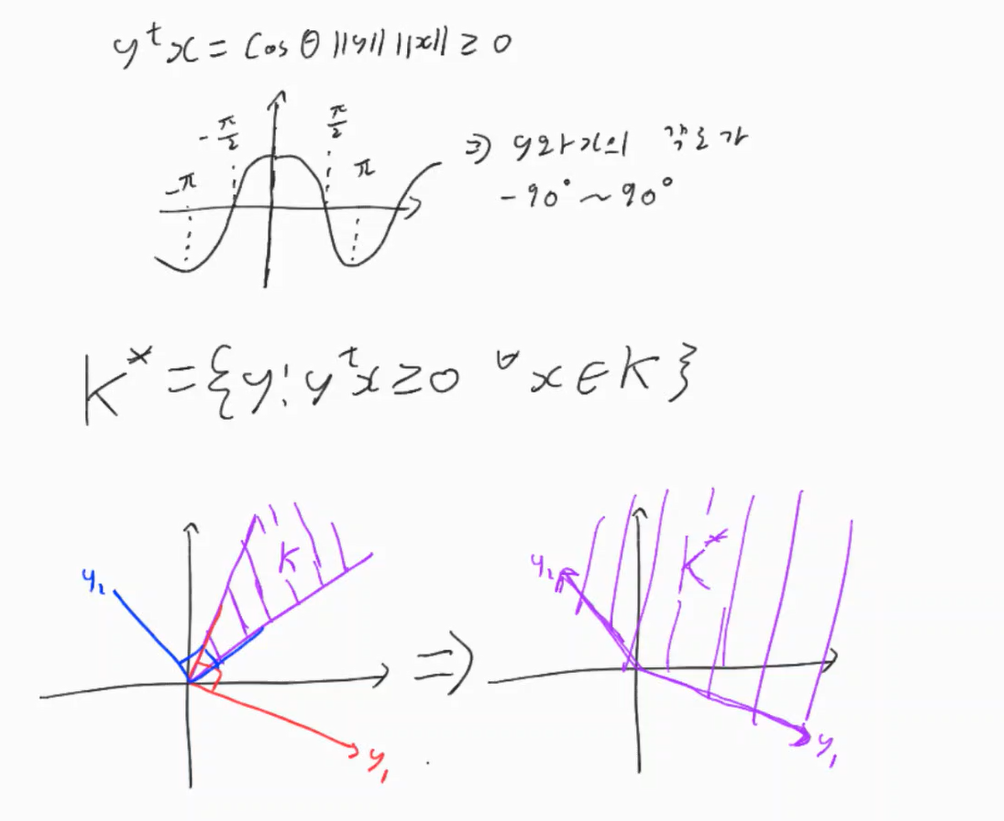 yᵗx = cos θ ||y|| ||x|| ≥ 0
-π/2
π/2
-π
π
⇒ y와 x의 각도가
-90° ~ 90°
K* = {y ! yᵗx ≥ 0 ∀x ∈ K}
K
y₂
y₁
⇒
K*
y₂
y₁